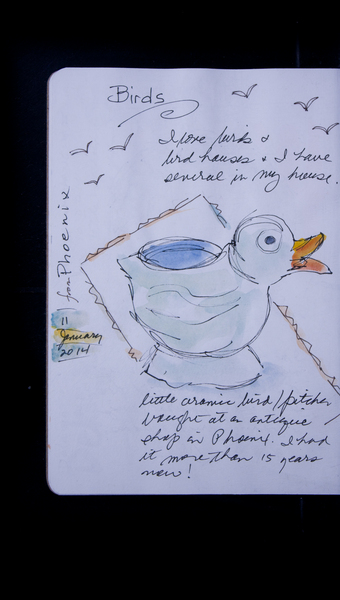 Birds
I love birds &
bird houses & I have
several in my house.
from Phoenix
11
January
2014
little ceramic bird/pitcher
bought at an antique
shop in Phoenix. I had
it more than 15 years
now!